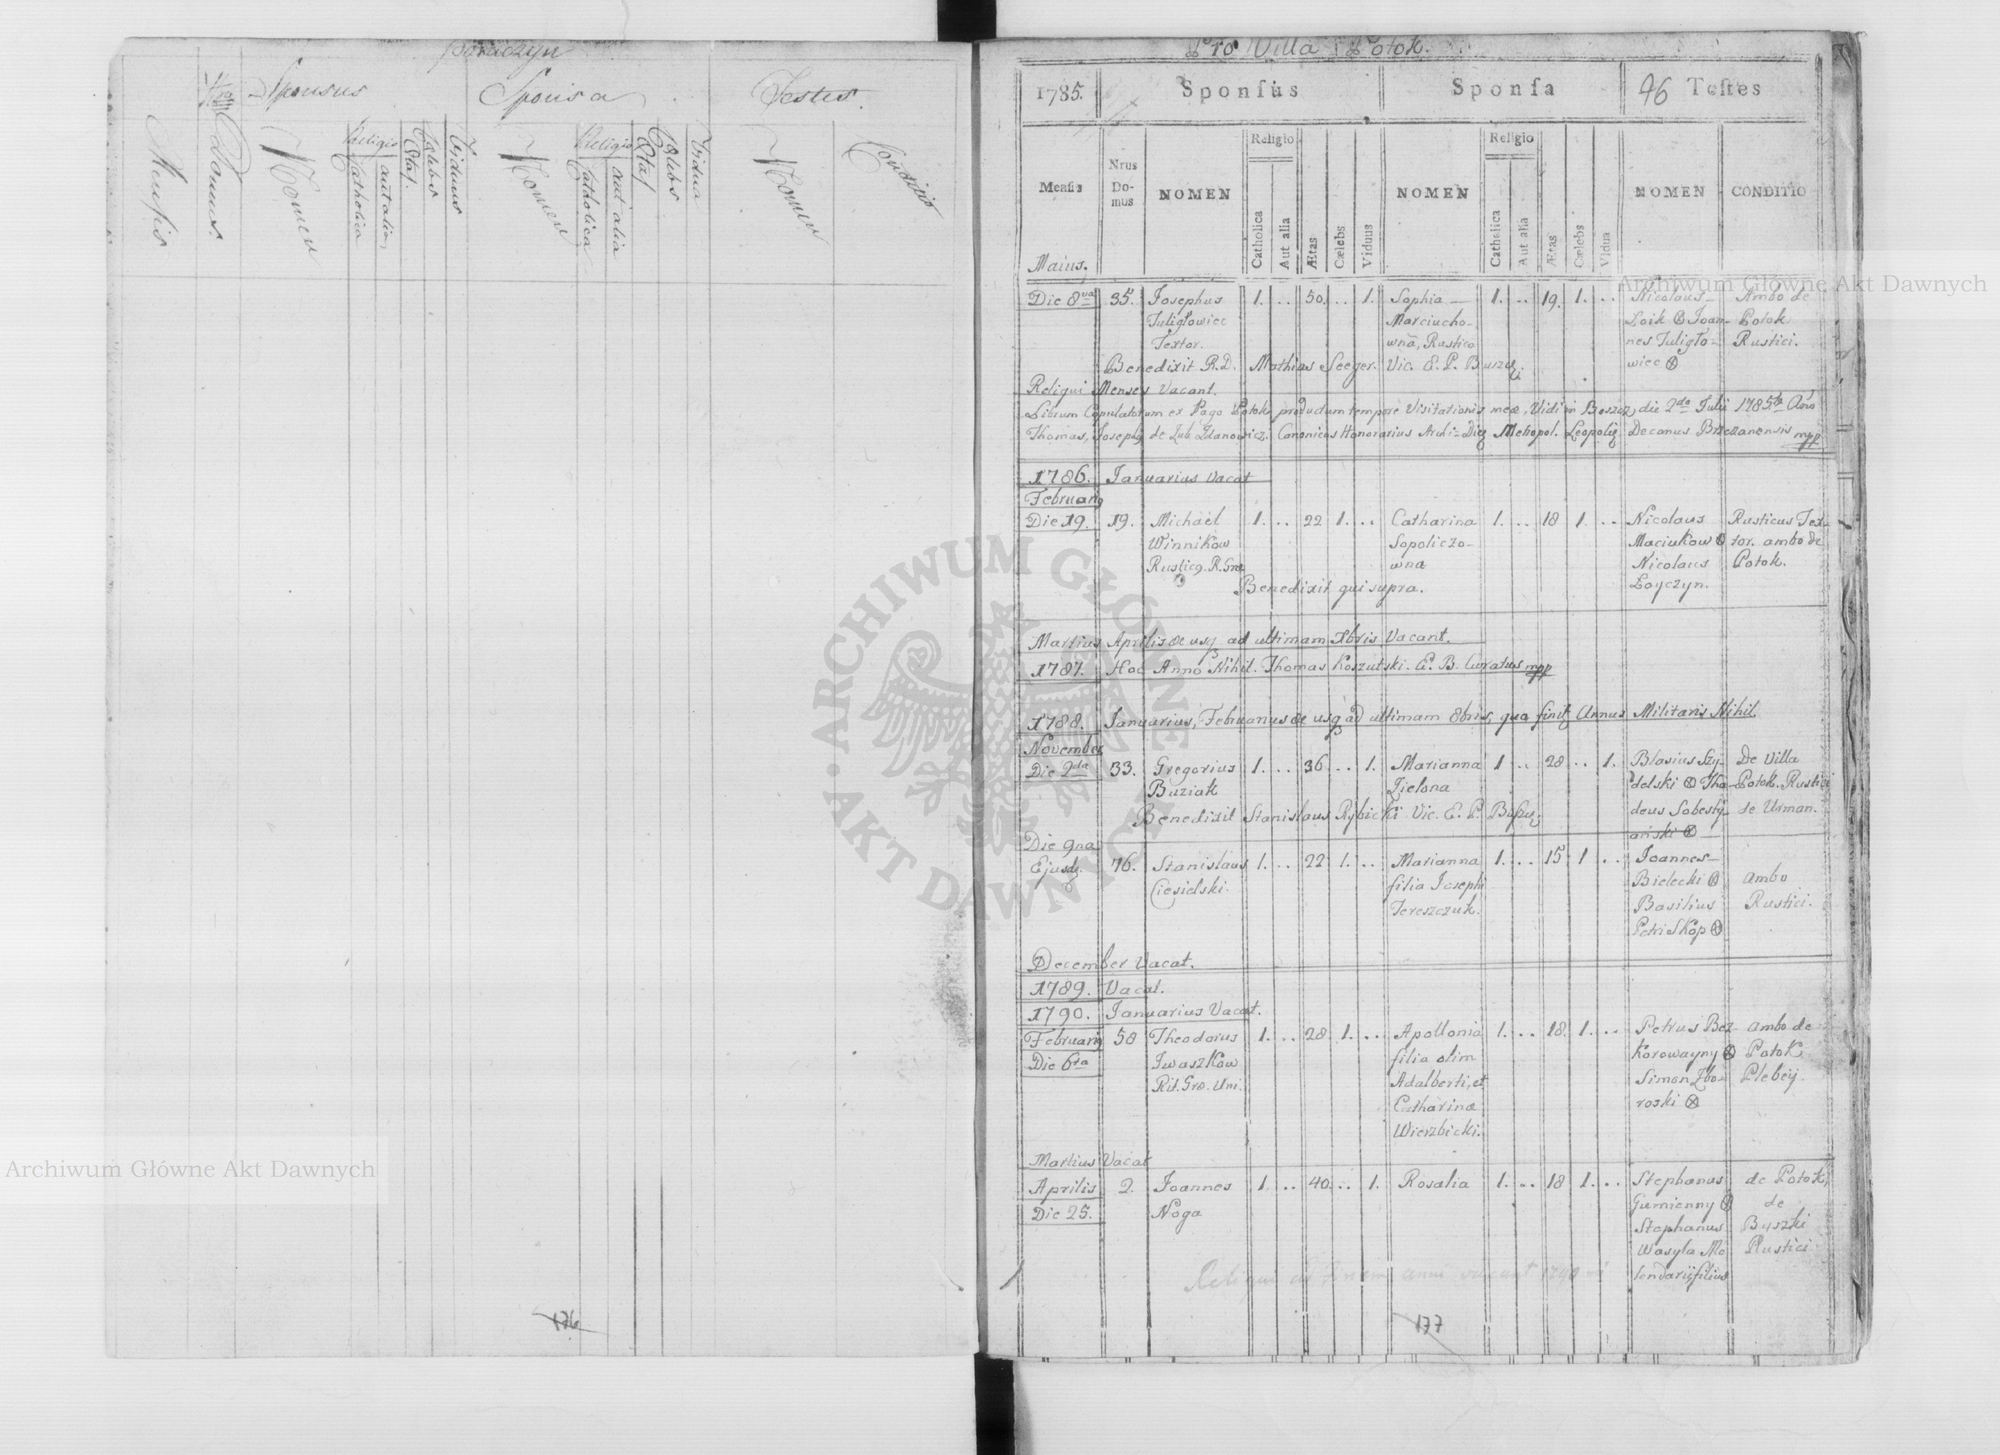 Sponsus
Sponsa
Testes.
Mensis
Nrus Domus
Nomen
Religio
Catholica
aut alia
Ætas
Cælebs
Viduus
Nomen
Religio
Catholica
aut alia
Ætas
Cælebs
Vidua
Nomen
Conditio
176
Pro Villa Potok.
1785. Sponsus Sponsa 96 Testes
Mensis
Nrus Do-mus
NOMEN
Religio
Catholica
Aut alia
Ætas
Cælebs
Viduus
NOMEN
Religio
Catholica
Aut alia
Ætas
Cælebs
Vidua
NOMEN
CONDITIO
Maius.
Die 8va 35. Josephus 1. .. 50. .. 1. Sophia 1. .. 19. 1. .. Nicolaus Ambo de
Tuligłowiec Marciucho- Łoik & Joan- Potok
Textor. wna, Rustica nes Tuligło- Rustici.
Benedixit R.D. Mathias Seeger. Vic. E. P. wiec
Religui Menses Vacant.
Librum Copulatorum ex Pago Potok productum tempore Visitationis meæ, Vidi in die 2da Julii 1785to Ano
Thomas, Joseph de Zdanowicz. Canonicus Honorarius Metropol. Decanus Brzezanensis mpp
1786. Januarius Vacat
Februarius
Die 19. 19. Michael 1. .. 22 1. .. Catharina 1. .. 18 1. .. Nicolaus Rusticus Tex-
Winnikow Sopoliczo- Maciukow & tor. ambo de
Rusticus. R. Græ wna Nicolaus Potok.
Benedixit qui supra. Łoyczyn.
Martius Aprilis & usq ad ultimam Xbris Vacant.
1787. Hoc Anno Nihil. Thomas Koszutski. E. B. Curatus mpp
1788. Januarius, Februarius & usq ad ultimam 8bris, qua finit Annus Militaris Nihil.
November
Die 2da 33. Gregorius 1. .. 36. .. 1. Marianna 1 .. 28 .. 1. Blasius Szy- De Villa
Buziak Zielona delski Tha- Potok. Rustici
Benedixit Stanislaus Rybicki Vic. E. P. deus Sobesty- de Urman.
ański
Die 9na
Ejusdem 76. Stanislaus 1. .. 22 1. .. Marianna 1. .. 15 1 .. Joannes
Ciesielski. filia Josephi Bielecki ambo
Tereszczuk. Basilius Rustici.
Petri Skop
December Vacat.
1789. Vacat.
1790. Januarius Vacat.
Februarius 58 Theodorus 1. .. 28 1. .. Apollonia 1. .. 18. 1. .. Petrus Bez- ambo de
Die 6ta Iwaszkow filia olim korowayny Potok
Rit. Græ. Uni. Adalberti, et Simon Zbo- Plebej.
Catharinæ roski
Wierzbicki.
Martius Vacat
Aprilis 2. Joannes 1. .. 40. .. 1. Rosalia 1. .. 18 1. .. Stephanus de Potok,
Die 25. Noga Gumienny de
Stephanus Byszki
Wasyla Mo Rustici
lendarii filius
Reliqui ad finem anni vacant 1790
177
ARCHIWUM GŁÓWNE · AKT DAWNYCH ·
Archiwum Główne Akt Dawnych
Archiwum Główne Akt Dawnych